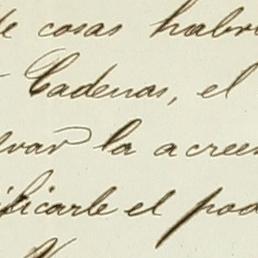 de cosas habr
Cadenas, el
var la acree
ificarle el pod